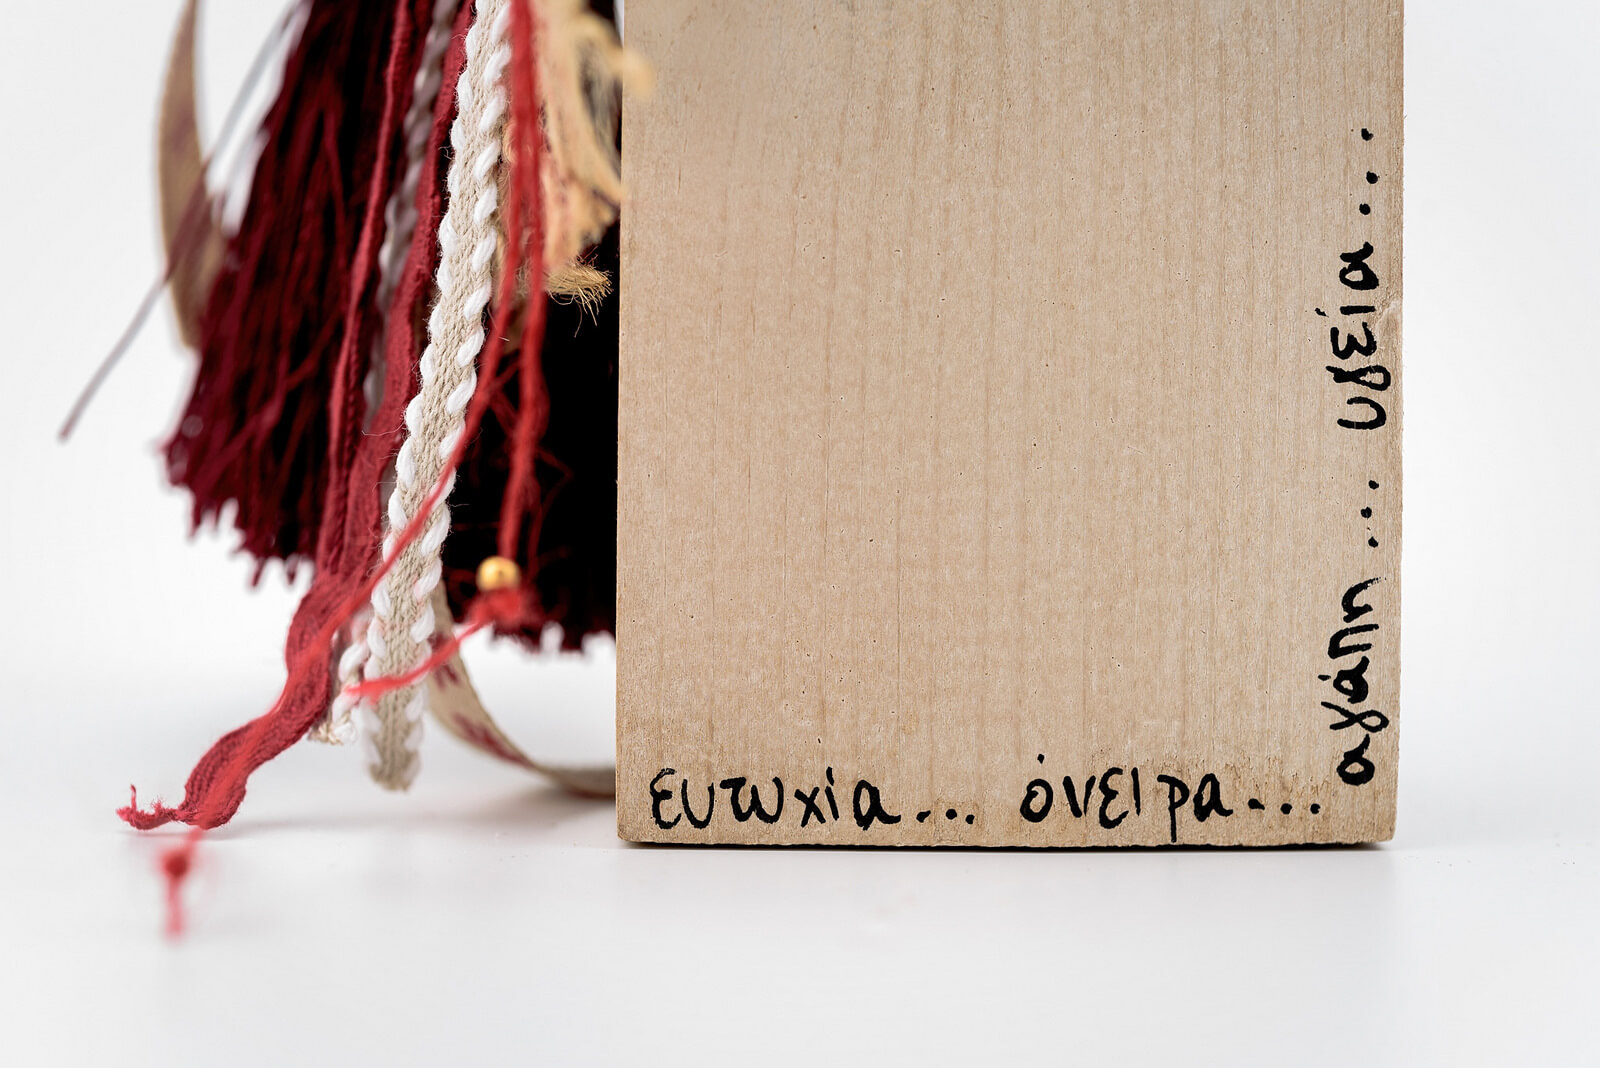 ευτυχία... όνειρα...
αγάπη... υγεία...